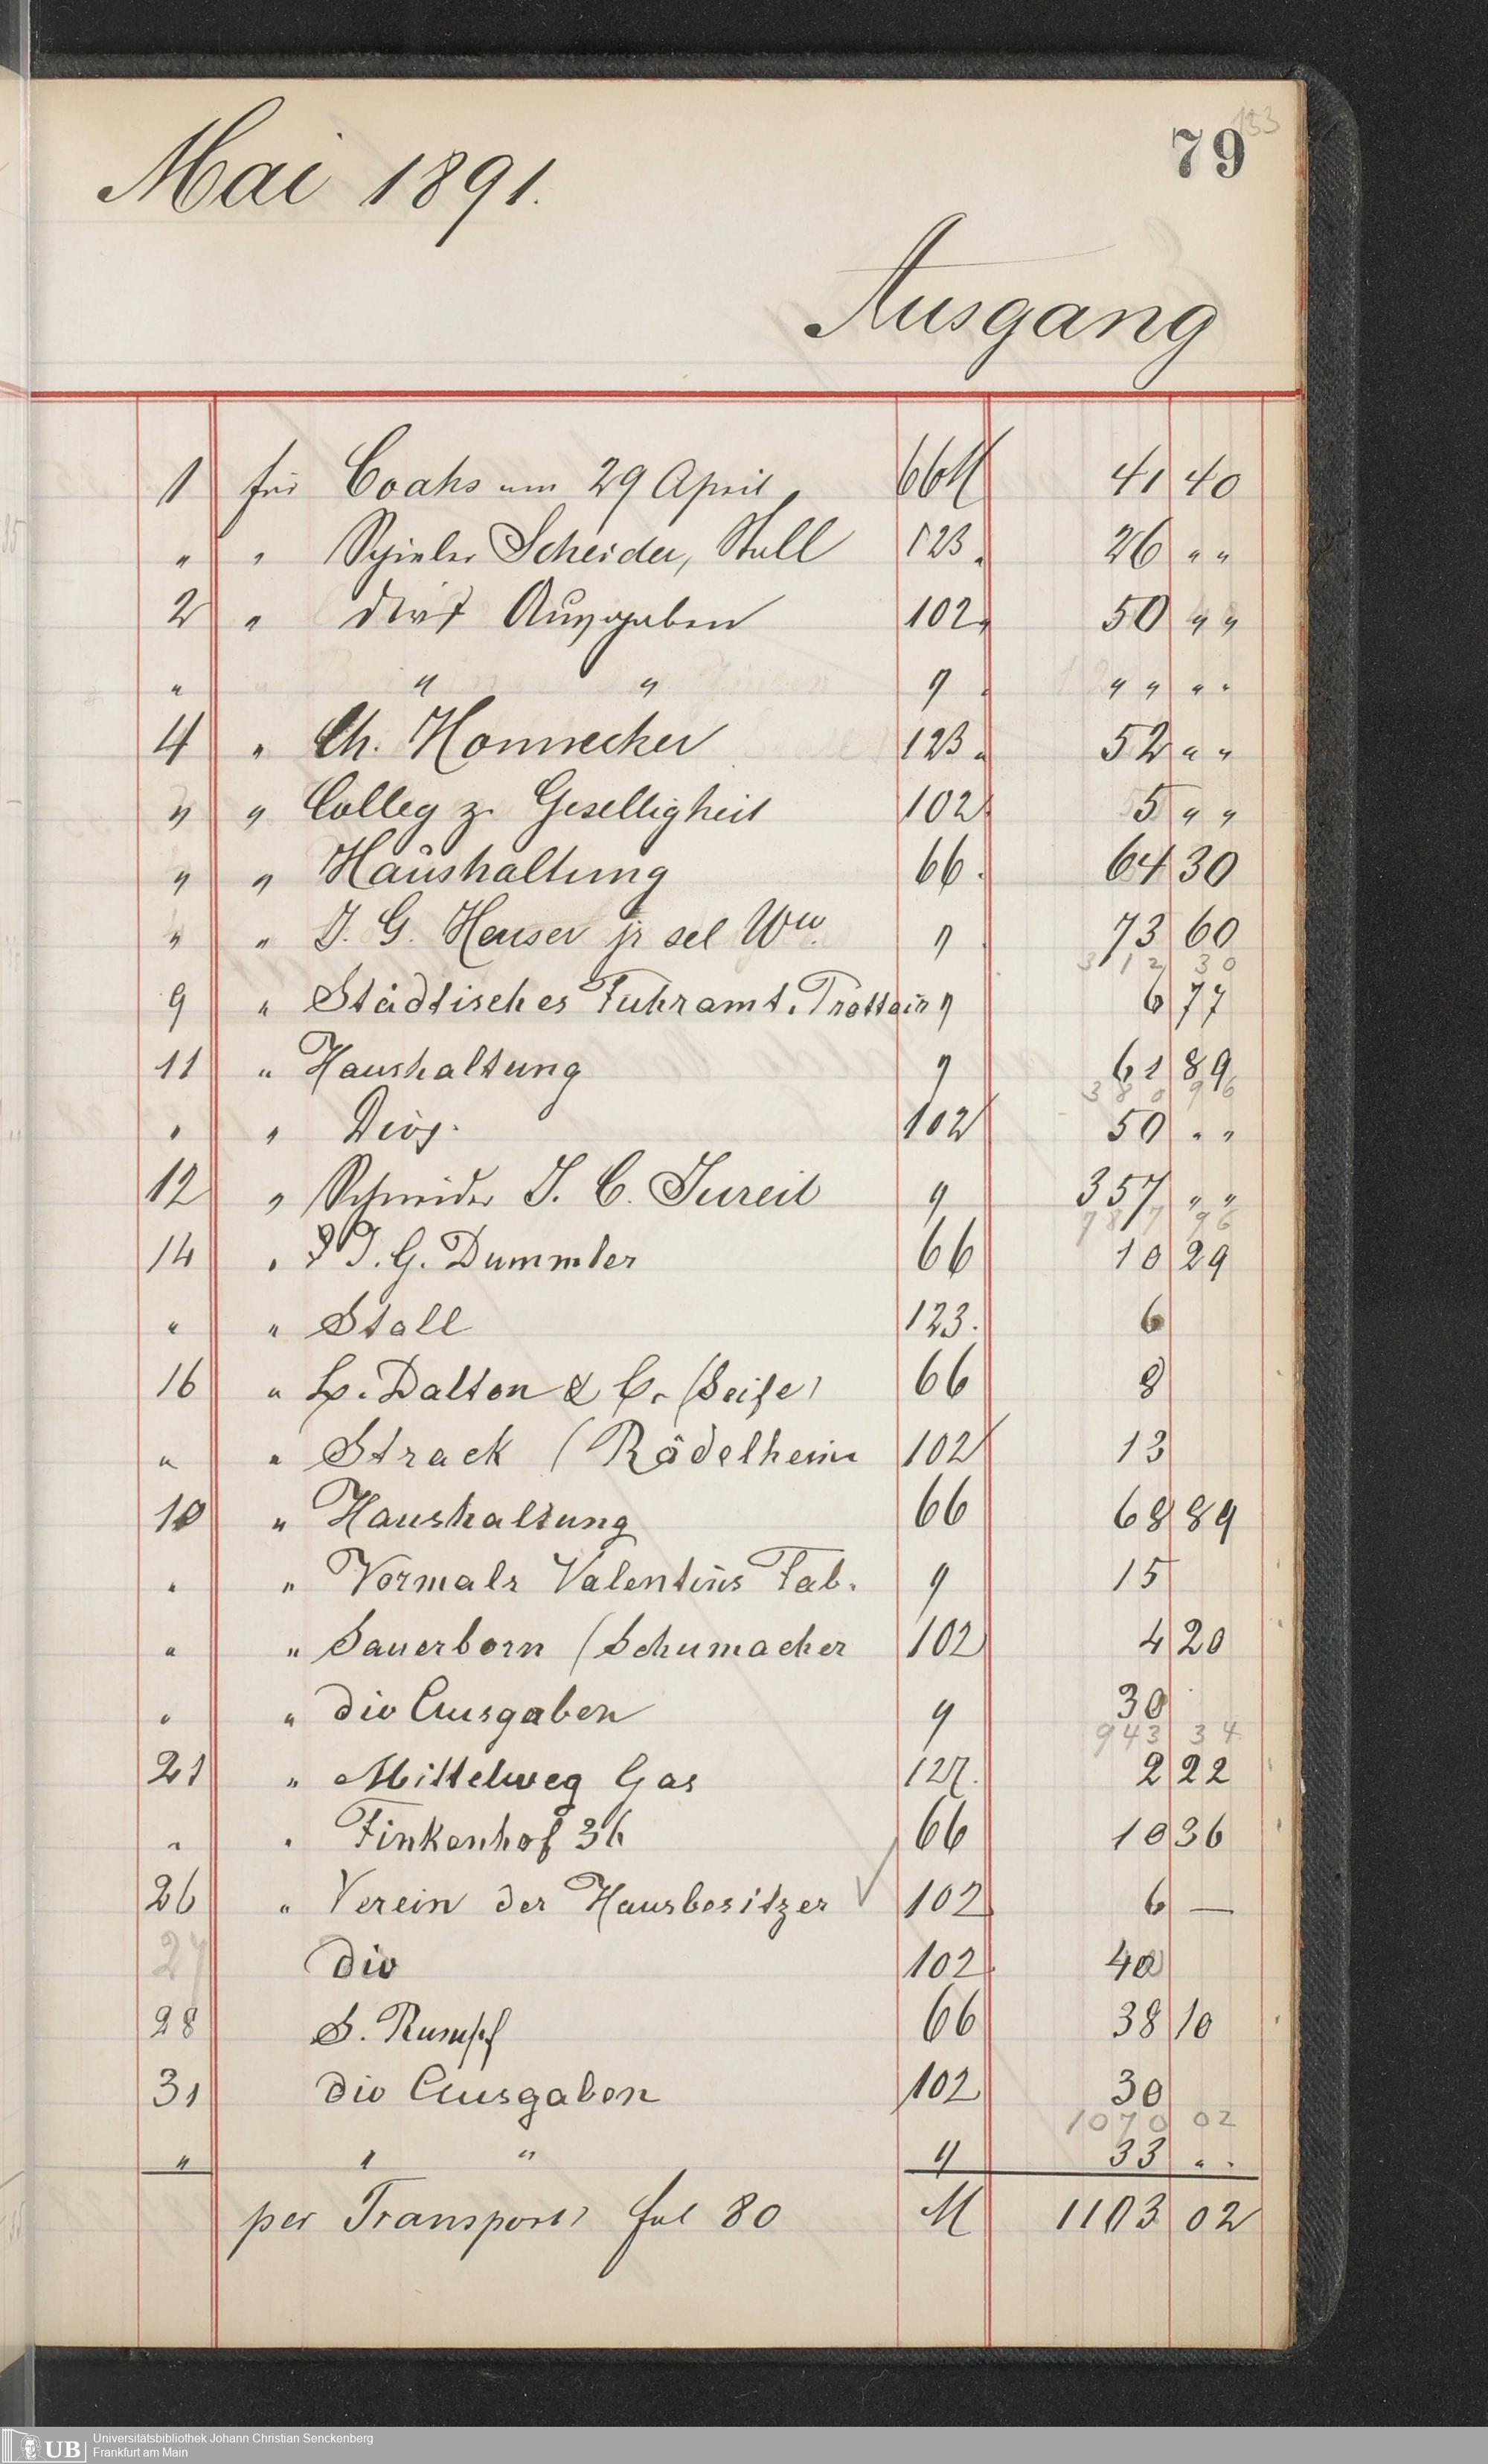 133
79
Mai 1891.
Ausgang
1 für Coaks am 29 April 66 M 41 40
" " Scheider, Stall 123 " 26 " "
2 " div Ausgaben 102 " 50 " "
" " " " " " " "
4 " Ch. Honnecker 123 " 52 " "
" " Colleg z. Geselligkeit 102 5 " "
" " Haushaltung 66 64 30
" " J. G. Heuser jr sel Ww. " 73 60
312 30
9 " Städtisches Fuhramt. Trottoir " 6 77
11 " Haushaltung " 61 89
380 96
" " Div. 102 50 " "
12 " Schneider J. C. Jureit " 357 " "
787 96
14 " J. G. Dummler 66 10 29
" " Stall 123. 6
16 " L. Dalton & C. (Seife) 66 8
" " Strack (Rödelheim 102 13
18 " Haushaltung 66 68 89
" " Vormals Valentins Fab. " 15
" " Sauerborn (Schumacher 102 4 20
" " div Ausgaben " 30
943 34
21 " Mittelweg Gas 127. 2 22
" " Finkenhof 36 66 10 36
26 " Verein der Hausbesitzer ✓ 102 6 —
27 div 102 40
28 S. Rumpf 66 38 10
31 div Ausgaben 102 30
1070 02
" " " " 33 " "
per Transport fol 80 M 1103 02
UB
Universitätsbibliothek Johann Christian Senckenberg
Frankfurt am Main